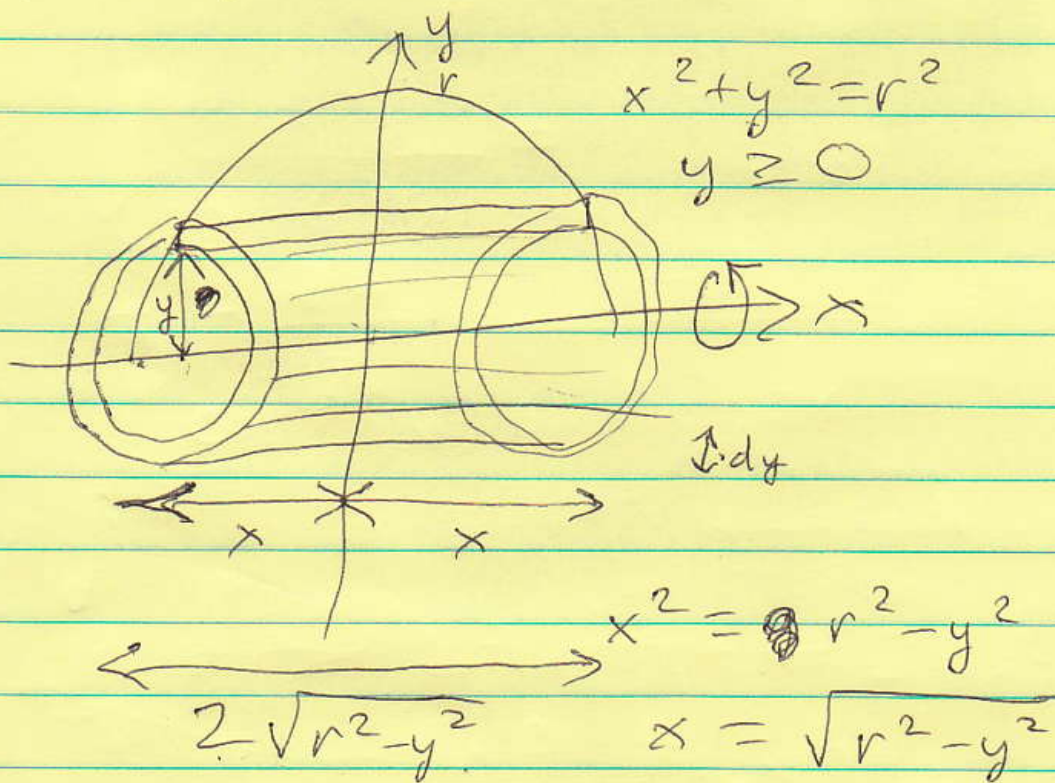 y
r
x² + y² = r²
y ≥ 0
y
x
dy
x x
x² = r² - y²
2√(r² - y²)
x = √(r² - y²)